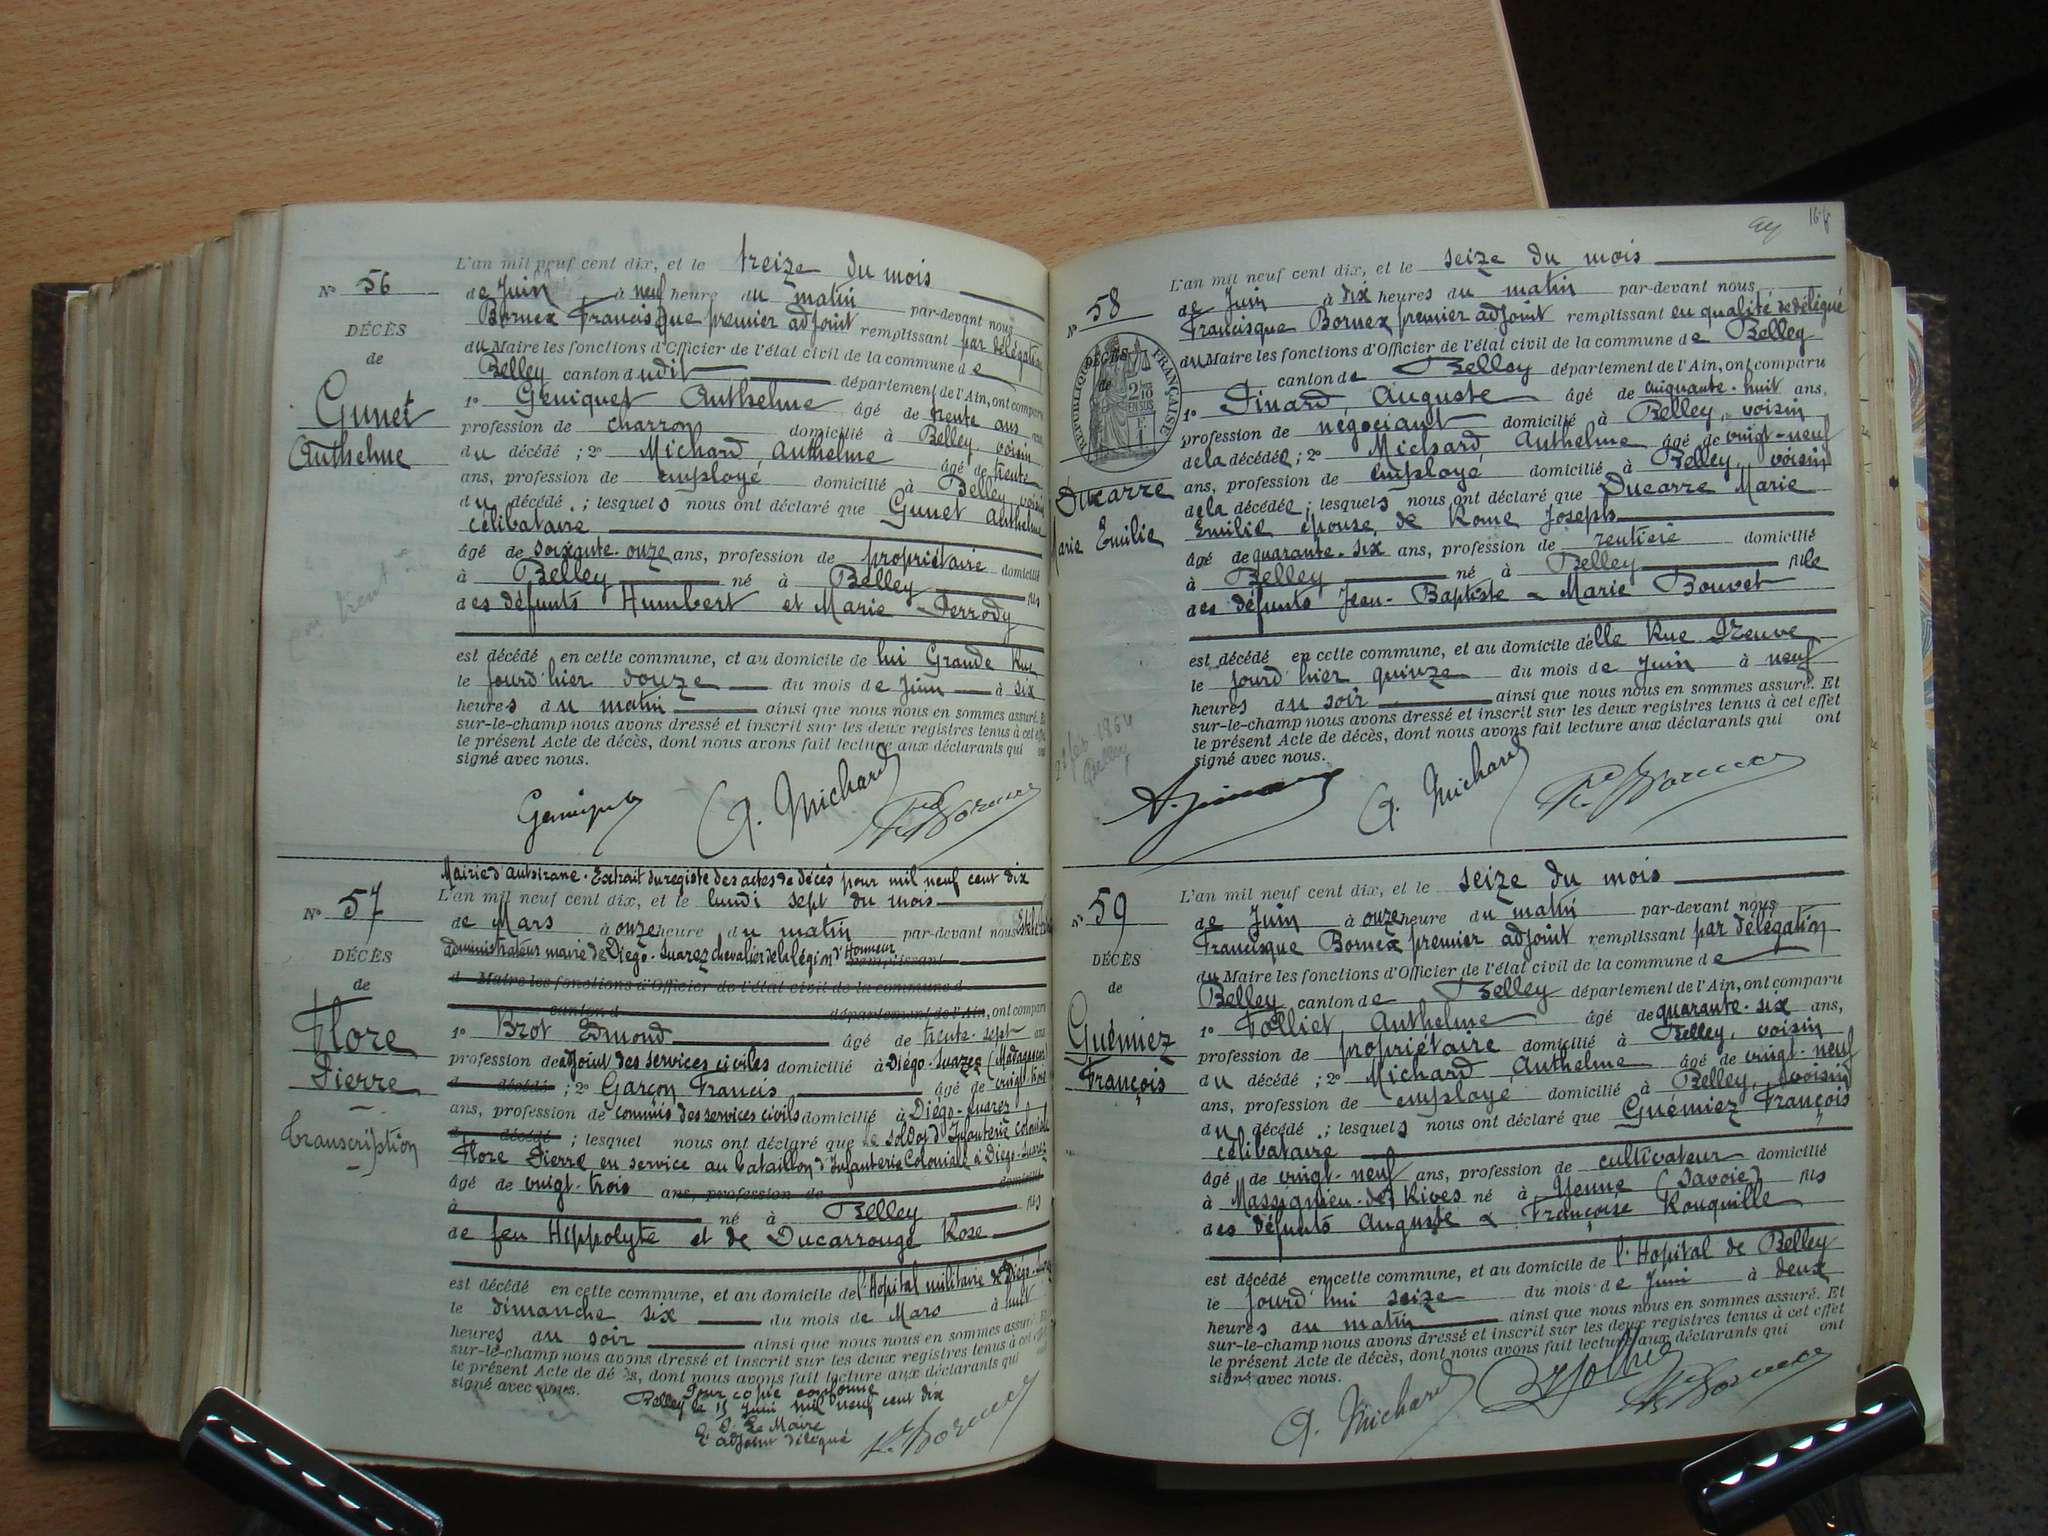 L'an mil neuf cent dix, et le treize du mois
N° 56
de Juin à neuf heure du matin par-devant nous
Bornex Francisque premier adjoint remplissant par délégation
DÉCÈS
du Maire les fonctions d'Officier de l'état civil de la commune de
de
Belley canton dudit département de l'Ain, ont comparu
Gunet
Anthelme
1° Geniquet Anthelme âgé de trente ans
profession de charron domicilié à Belley, voisin
du décédé ; 2° Michard Anthelme âgé de trente
ans, profession de employé domicilié à Belley voisin
du décédé ; lesquels nous ont déclaré que Gunet Anthelme
célibataire
âgé de soixante-onze ans, profession de propriétaire domicilié
à Belley né à Belley fils
des défunts Humbert et Marie Perrody
est décédé en cette commune, et au domicile de lui Grande Rue
le jourd'hier douze du mois de Juin à six
heures du matin ainsi que nous nous en sommes assuré. Et
sur-le-champ nous avons dressé et inscrit sur les deux registres tenus à cet effet
le présent Acte de décès, dont nous avons fait lecture aux déclarants qui ont
signé avec nous.
A. Michard
Bornex
Mairie d'Antsirane. Extrait du registe des actes de décès pour mil neuf cent dix
N° 57
L'an mil neuf cent dix, et le lundi sept du mois
de Mars à onze heure du matin par-devant nous
administrateur maire de Diégo-Suarez chevalier de la légion d'Honneur remplissant
DÉCÈS
d Maire les fonctions d'Officier de l'état civil de la commune d
de
canton d département de l'Ain, ont comparu
Flore
Pierre
Transcription
1° Brot Edmond âgé de trente-sept ans
profession de adjoint des services civiles domicilié à Diégo-Suarez (Madagascar)
d décédé ; 2° Garçon Francis âgé de vingt-trois
ans, profession de commis des services civils domicilié à Diégo-Suarez
d décédé ; lesquel nous ont déclaré que le soldat d'Infanterie coloniale
Flore Pierre en service au bataillon d'Infanterie Coloniale à Diégo-Suarez
âgé de vingt-trois ans, profession de domicilié
à né à Belley fils
de feu Hippolyte et de Ducarrouge Rose
est décédé en cette commune, et au domicile de l'Hopital militaire de Diégo-Suarez
le dimanche six du mois de Mars à huit
heures du soir ainsi que nous nous en sommes assuré. Et
sur-le-champ nous avons dressé et inscrit sur les deux registres tenus à cet effet
le présent Acte de décès, dont nous avons fait lecture aux déclarants qui
signé avec nous.
Pour copie conforme
Belley le 15 Juin mil neuf cent dix
P. Le Maire
L'adjoint délégué
Bornex
L'an mil neuf cent dix, et le seize du mois
N° 58
de Juin à dix heures du matin par-devant nous
Francisque Bornex premier adjoint remplissant en qualité de délégué
DÉCÈS
de
RÉPUBLIQUE FRANÇAISE
du Maire les fonctions d'Officier de l'état civil de la commune de Belley
canton de Belley département de l'Ain, ont comparu
Ducarre
Marie Emilie
1° Pinard Auguste âgé de cinquante-huit ans,
profession de négociant domicilié à Belley, voisin
de la décédée ; 2° Michard Anthelme âgé de vingt-neuf
ans, profession de employé domicilié à Belley, voisin
de la décédée ; lesquels nous ont déclaré que Ducarre Marie
Emilie épouse de Rome Joseph
âgé de quarante-six ans, profession de rentière domicilié
à Belley né à Belley fille
des défunts Jean-Baptiste & Marie Bouvet
est décédé en cette commune, et au domicile d'elle Rue Neuve
le jourd'hier quinze du mois de Juin à neuf
heures du soir ainsi que nous nous en sommes assuré. Et
sur-le-champ nous avons dressé et inscrit sur les deux registres tenus à cet effet
le présent Acte de décès, dont nous avons fait lecture aux déclarants qui ont
signé avec nous.
1864
Belley
A. Michard
Bornex
L'an mil neuf cent dix, et le seize du mois
N° 59
de Juin à onze heure du matin par-devant nous
Francisque Bornex premier adjoint remplissant par délégation
DÉCÈS
du Maire les fonctions d'Officier de l'état civil de la commune de
de
Belley canton de Belley département de l'Ain, ont comparu
Guémiez
François
1° Folliet Anthelme âgé de quarante-six ans,
profession de propriétaire domicilié à Belley, voisin
du décédé ; 2° Michard Anthelme âgé de vingt-neuf
ans, profession de employé domicilié à Belley, voisin
du décédé ; lesquels nous ont déclaré que Guémiez François
célibataire
âgé de vingt-neuf ans, profession de cultivateur domicilié
à Massignieu-de-Rives né à Yenne (Savoie) fils
des défunts Auguste & Françoise Rouquille
est décédé en cette commune, et au domicile de l'Hopital de Belley
le jourd'hui seize du mois de Juin à deux
heures du matin ainsi que nous nous en sommes assuré. Et
sur-le-champ nous avons dressé et inscrit sur les deux registres tenus à cet effet
le présent Acte de décès, dont nous avons fait lecture aux déclarants qui ont
signé avec nous.
A. Michard
Bornex